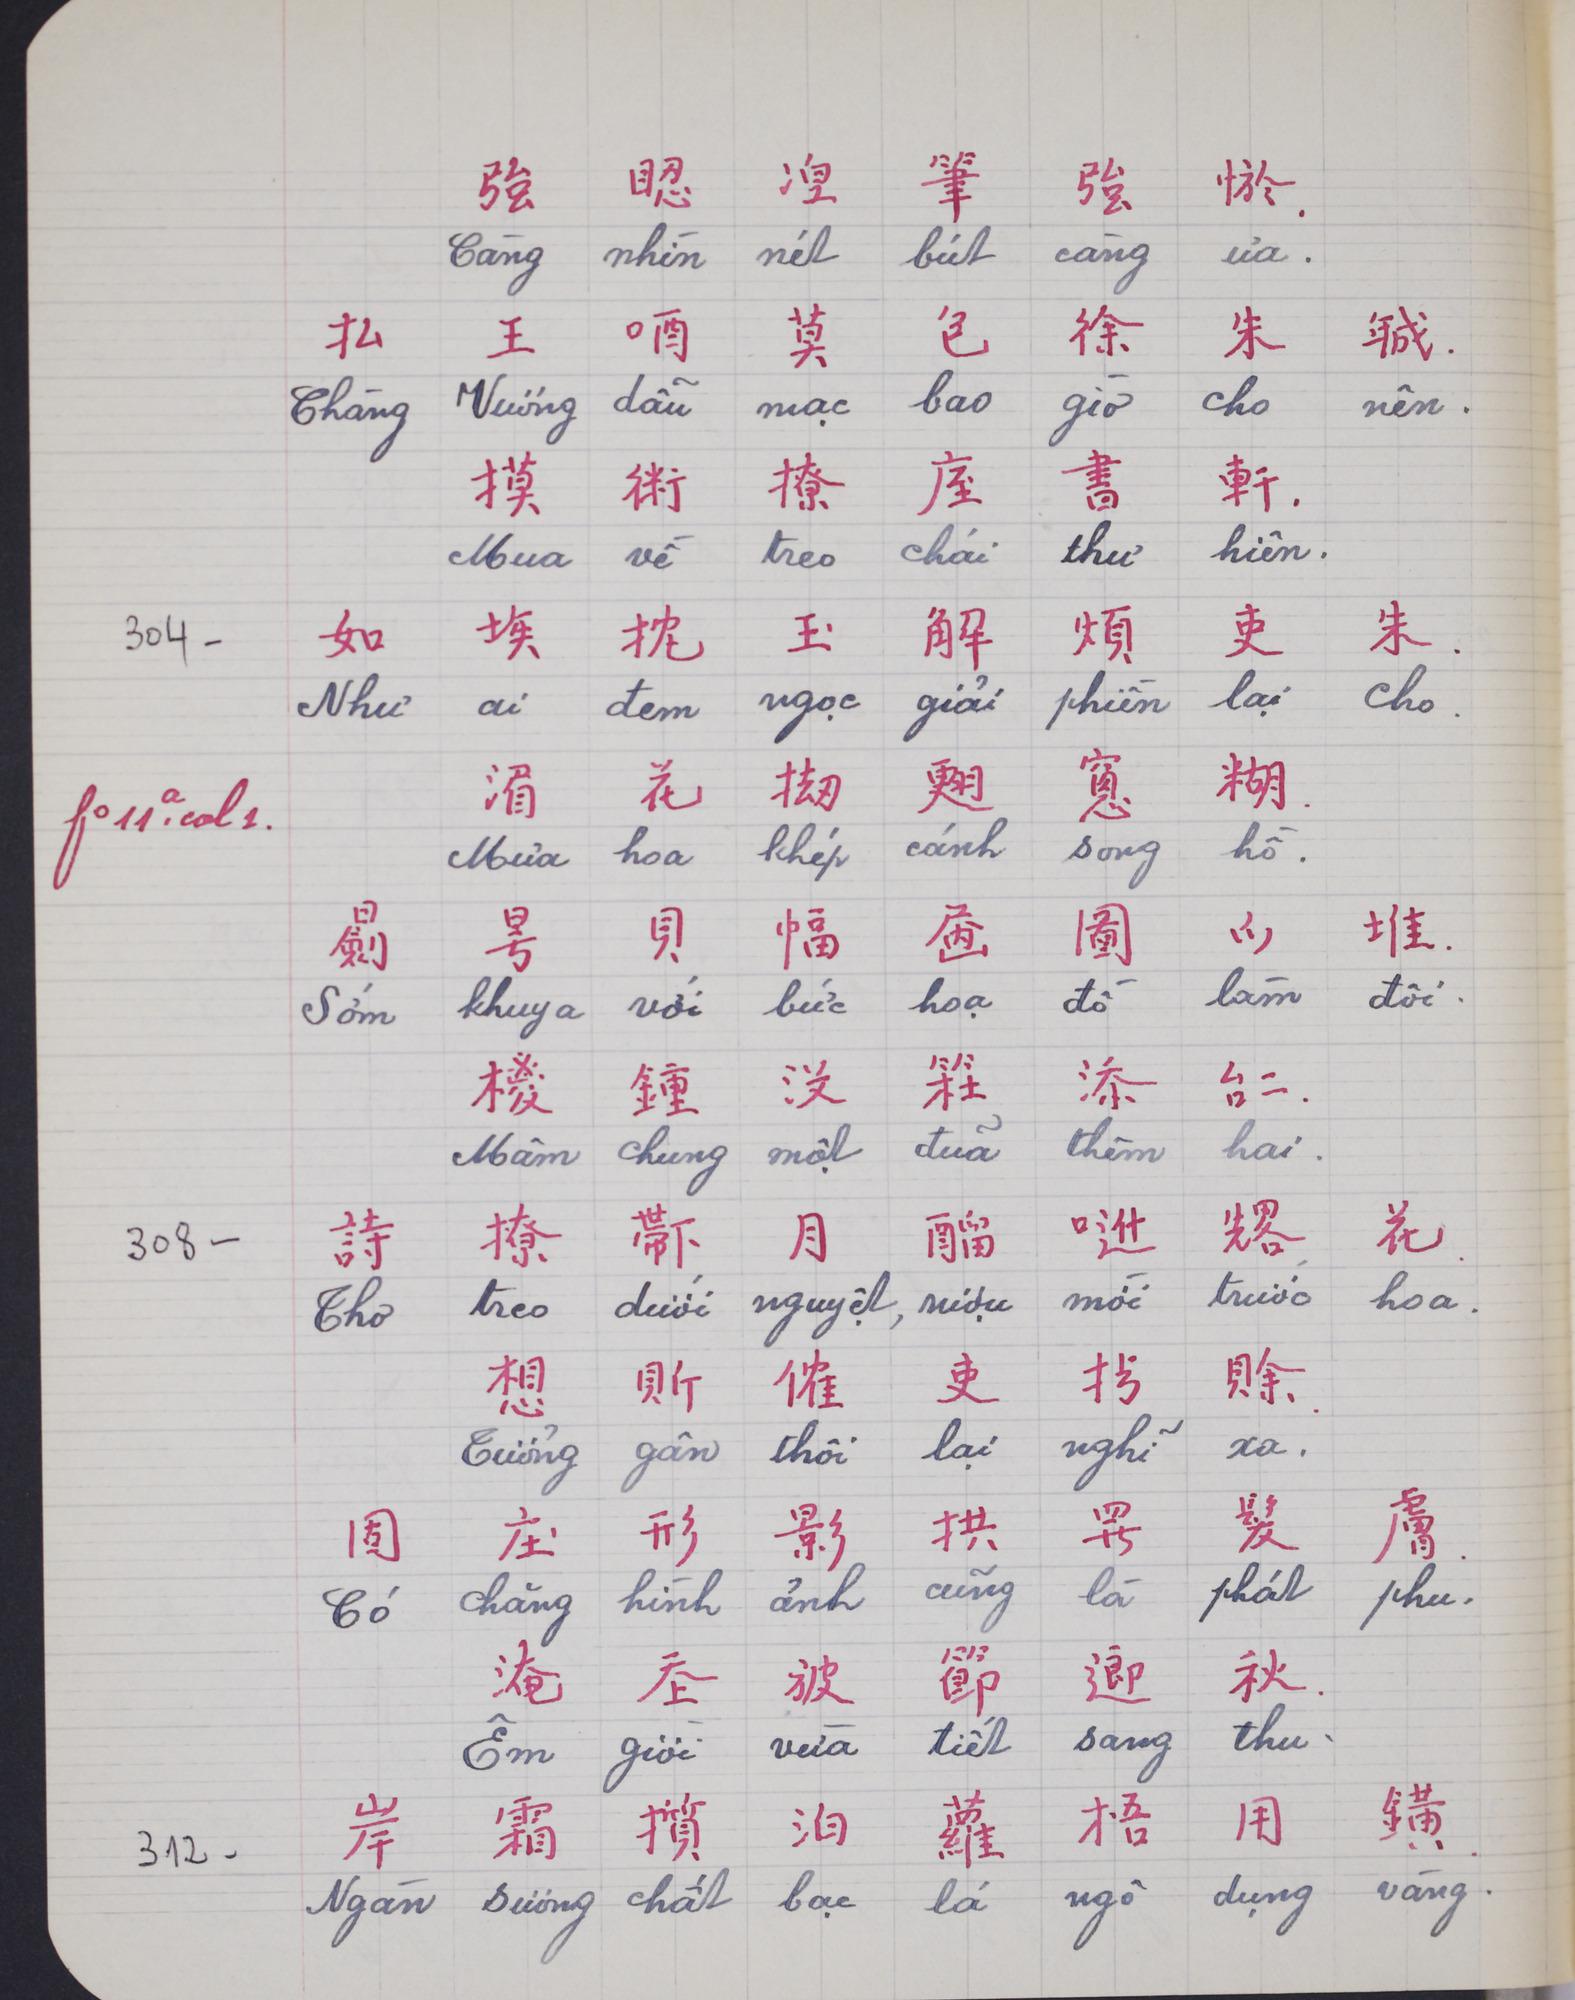 強 𥆾 湼 筆 強 㤇.
Càng nhìn nét bút càng ưa.
払 王 唒 莫 包 徐 朱 𢧚.
Chàng Vương dẫu mạc bao giờ cho nên.
摸 術 撩 庢 書 軒.
Mua về treo chái thư hiên.
304 - 如 埃 抌 玉 解 煩 吏 朱.
Như ai đem ngọc giải phiền lại cho.
湄 花 𢭳 𦑃 窻 糊.
fº 11ª. col 1.
Mưa hoa khép cánh song hồ.
𣋽 𣌉 貝 幅 画 圖 𫜵 堆.
Sớm khuya với bức hoạ đồ làm đôi.
鍾 没 添 𠄩.
Mâm chung một đũa thêm hai.
308 - 詩 撩 𨑜 月 𨢇 𠶆 𠓀 花.
Thơ treo dưới nguyệt, rượu mời trước hoa.
想 𧵆 傕 吏 𢪀 賖.
Tưởng gần thôi lại nghĩ xa.
固 庄 形 影 拱 𦉱 髮 膚.
Có chăng hình ảnh cũng là phát phu.
淹 𡗶 𣃣 節 𨖅 秋.
Êm giời vừa tiết sang thu.
312 - 岸 霜 攢 泊 蘿 梧 用 鐄.
Ngàn sương chất bạc lá ngô dụng vàng.